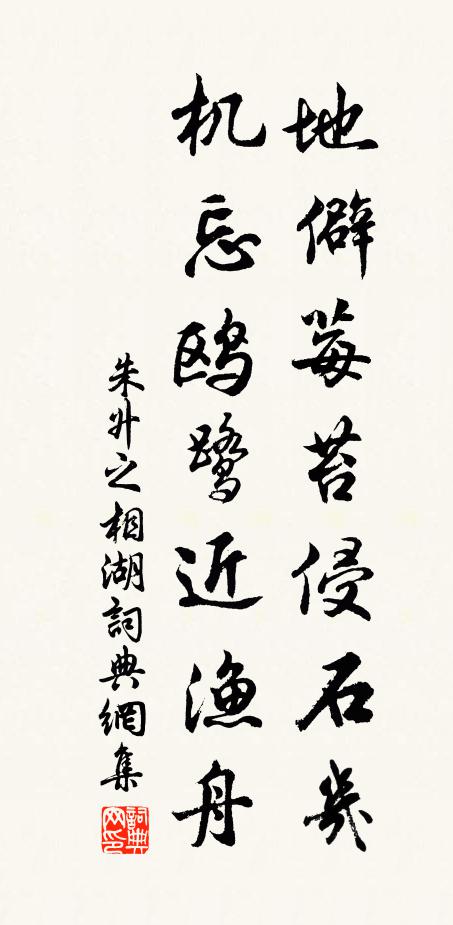 地僻莓苔侵石幾
机忘鸥鹭近渔舟
朱升之相湖詞典網集
詞典网印